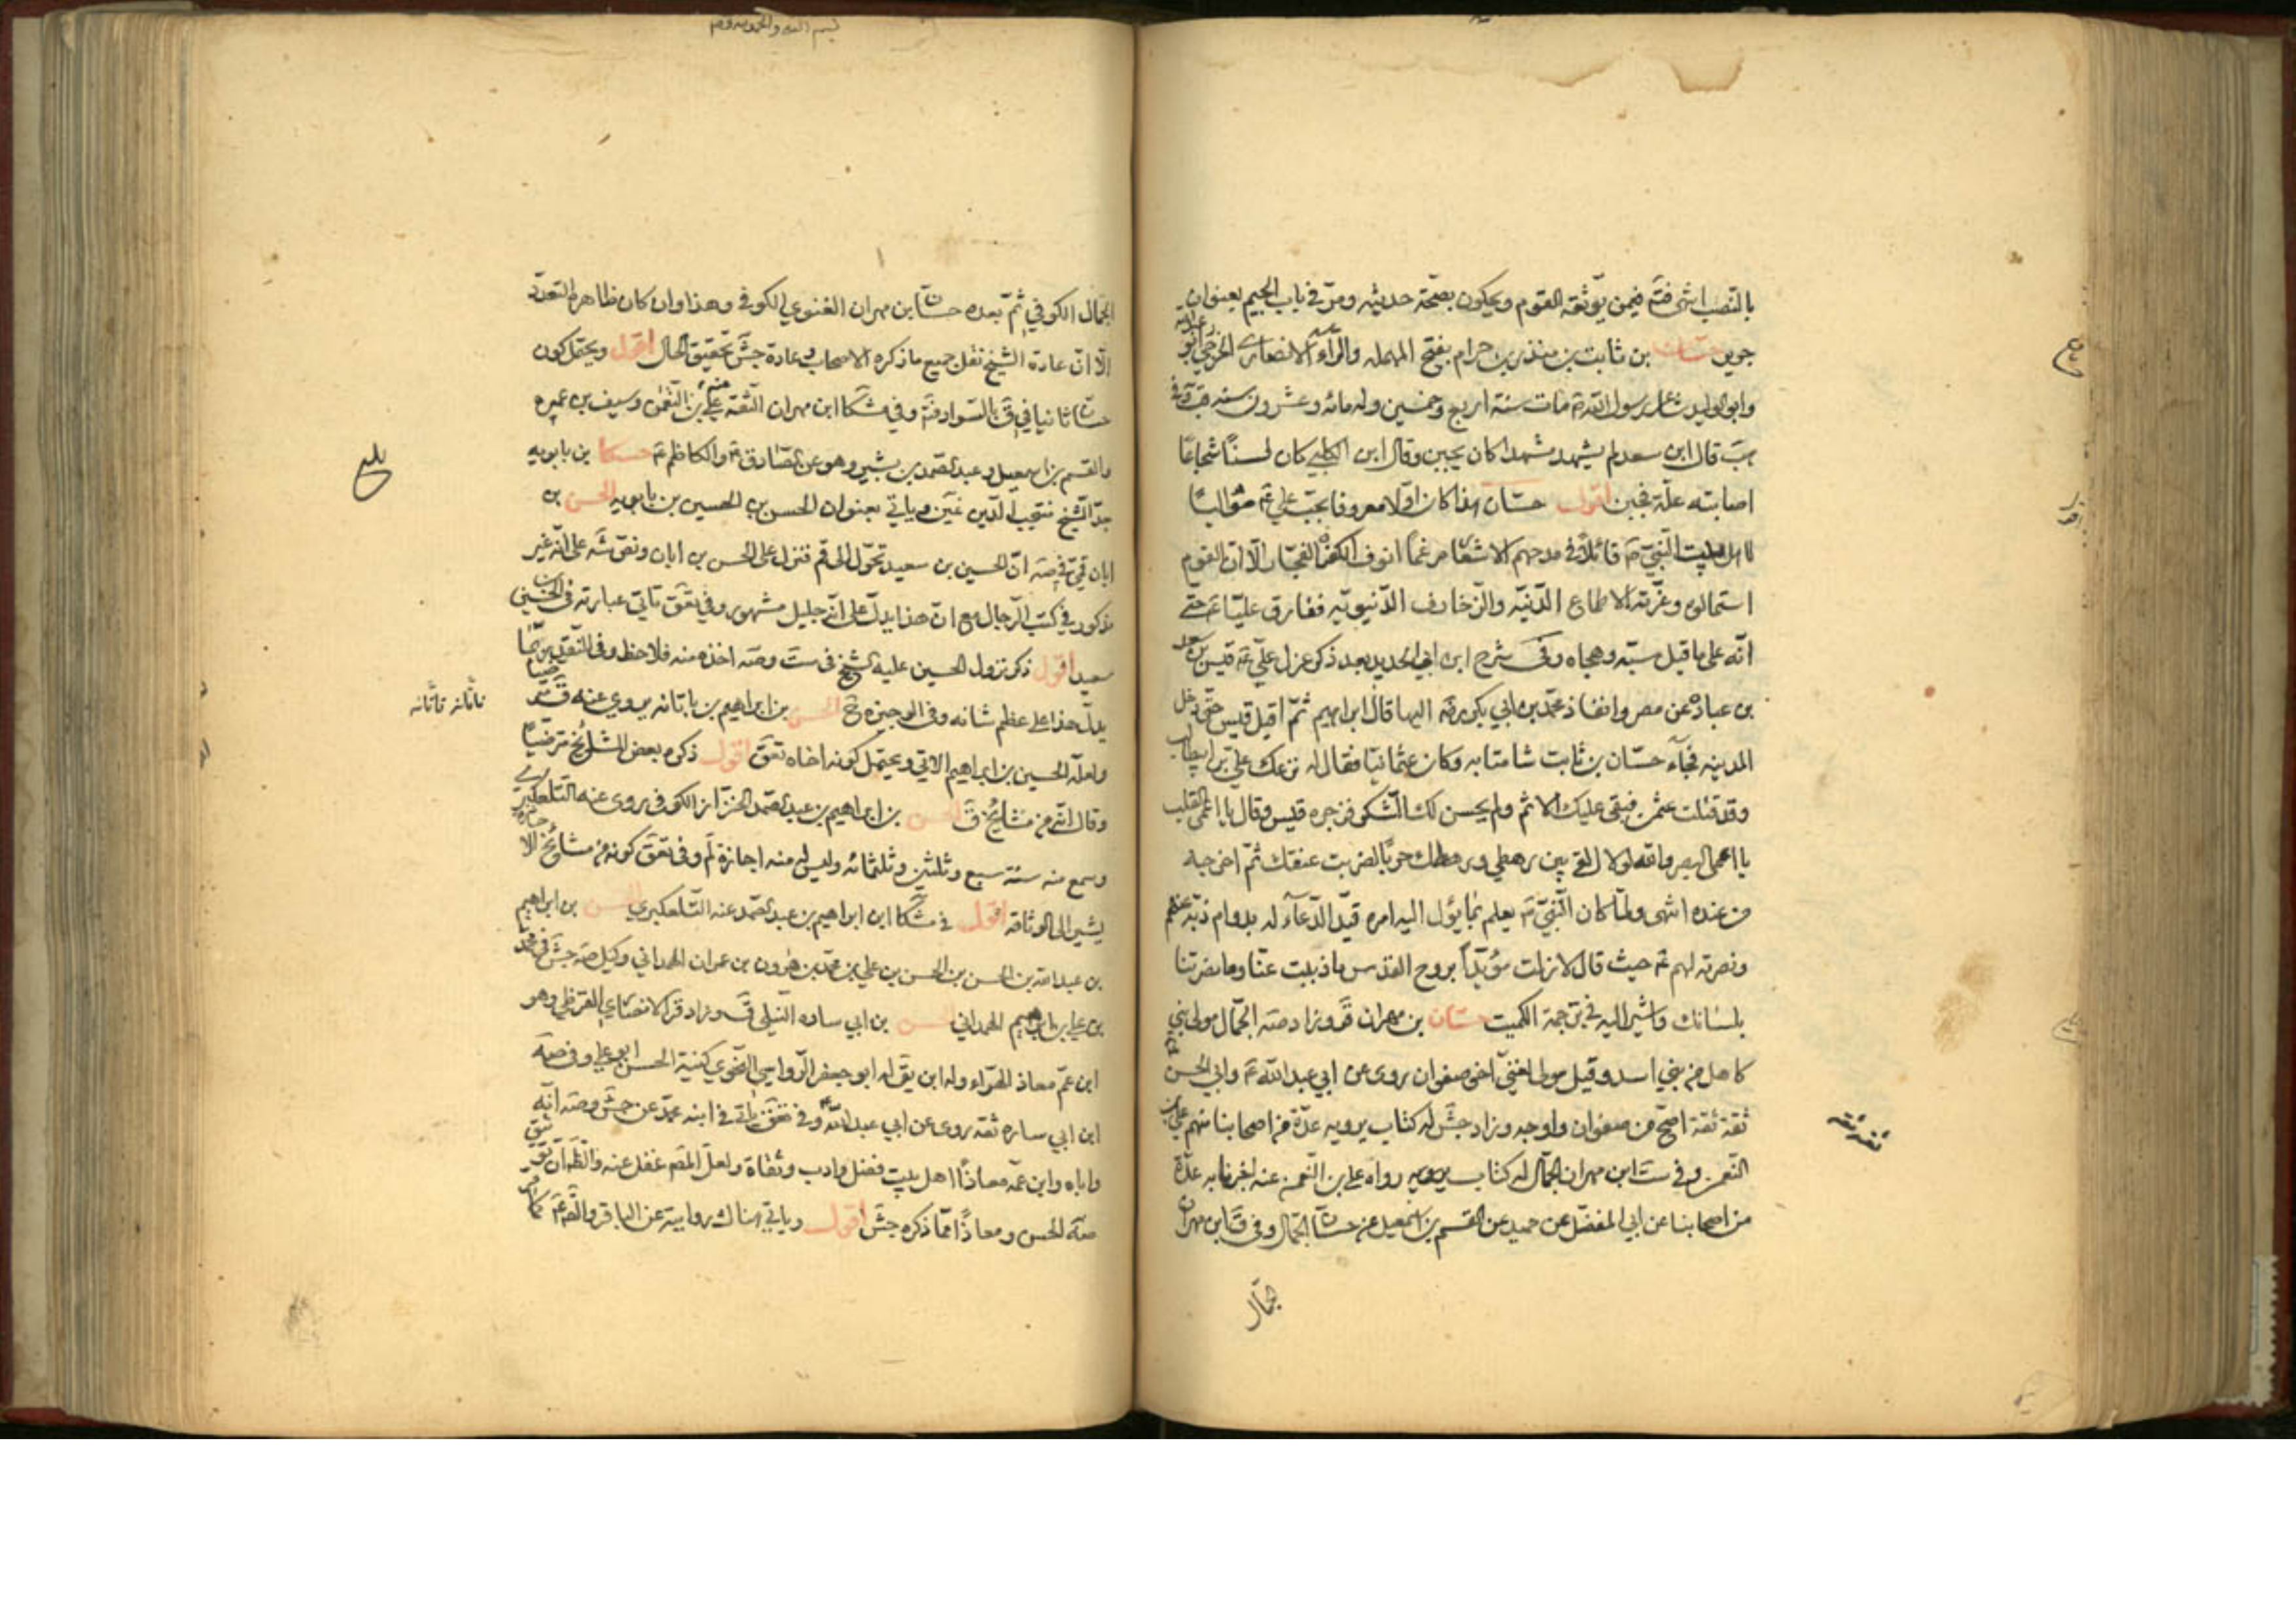 بالنصب انتهى فتم فيمن يوثقه القوم ويحكون بصحة حديثه ومر في باب الجيم بعنوان
جوين حسان بن ثابت بن منذر بن حرام بفتح المهمله والراء الانصاري الخزرجي ابو عبد الله
وابو الوليد شاعر رسول الله ص مات سنة اربع وخمسين وله مائه وعشرون سنه
قال ابن سعد لم يشهد مشهدا كان يجبن وقال ابن الكلبي كان لسنا شجاعا
اصابته علة فجبن اقول حسان هذا كان اولا معروفا بحب علي ع مواليا
لاهل بيت النبي ص قائلا في مدحهم الاشعار مرغما انوف الكفرة الفجار الا ان القوم
استمالوه وغرته الاطماع الدنيه والزخارف الدنيويه ففارق عليا ع حتى
انه على ما قيل سبه وهجاه وفي شرح ابن ابي الحديد بعد ذكر عزل علي ع قيس بن سعد
بن عباده عن مصر وانفاذ محمد بن ابي بكر ره اليها قال ابراهيم ثم اقبل قيس حتى دخل
المدينه فجاء حسان بن ثابت شامتا به وكان عثمانيا فقال له نزعك علي بن ابيطالب
وقد قتلت عثمن فبقى عليك الاثم ولم يحسن لك الشكر فزجره قيس وقال يا اعمى القلب
يا اعمى البصر والله لولا القى بين رهطي ورهطك حربا لضربت عنقك ثم اخرجه
من عنده انتهى ولما كان النبي ص يعلم بما يؤل اليه امره قيد الدعاء له بدوام ذبه عنهم
ونصرته لهم ع حيث قال لا زلت مؤيدا بروح القدس ما ذببت عنا وما نصرتنا
بلسانك واشير اليه في ترجمة الكميت حسان بن مهران ق وزاد صه الجمال مولى بني
كاهل من بني اسد وقيل مولى لغني اخو صفوان روى عن ابي عبد الله ع وابي الحسن ع
ثقة ثقة اصح من صفوان واوجه وزاد جش له كتاب يرويه عدة من اصحابنا منهم علي بن
النعمن وفي ست ابن مهران الجمال له كتاب يرويه رواه علي بن النعمن عنه اخبرنا به عدة
من اصحابنا عن ابي المفضل عن حميد عن القسم بن اسمعيل عن حسان الجمال وفي ق ابن مهران
جمال
ثقه ثقه
الجمال الكوفي ثم بعده حسان بن مهران الغنوي الكوفي وهذا وان كان ظاهره التعدد
الا ان عادة الشيخ نقل جميع ما ذكره الاصحاب وعادة جش تحقيق الحال اقول ويحتمل كون
حسان ثانيا في ق بالسواد فتم وفي مشكا ابن مهران الثقة عنه علي بن النعمن وسيف بن عميره
والقسم بن اسمعيل وعبد الصمد بن بشير وهو عن الصادق ع والكاظم ع حسكا بن بابويه
جد الشيخ منتجب الدين غين وياتي بعنوان الحسن بن الحسين بن بابويه الحسن بن
ابان قمي في صه ان الحسين بن سعيد تحول الى قم فنزل على الحسن بن ابان ونص شه على انه غير
مذكور في كتب الرجال مع ان هذا يدل على انه جليل مشهور وفي تعق تاتي عبارته في الحسين بن
سعيد اقول ذكر نزول الحسين عليه الشيخ في ست وصه اخذه منه فلاحظ وفي النقد ربما
يدل هذا على عظم شانه وفي الوجيزه ح الحسن بن ابراهيم بن باتانه يروي عنه ق مترضيا
ولعله الحسين بن ابراهيم الاتي ويحتمل كونه اخاه تعق اقول ذكره بعض المشايخ مترضيا
وقال انه من مشايخ ق الحسن بن ابراهيم بن عبد الصمد الخزاز الكوفي روى عنه التلعكبري
وسمع منه سنة سبع وثلثين وثلثمائه وليس له منه اجازة لم وفي تعق كونه من مشايخ الاجازه
يشير الى الوثاقه اقول في مشكا ابن ابراهيم بن عبد الصمد عنه التلعكبري الحسن بن ابراهيم
بن عبد الله بن الحسن بن الحسن بن علي بن محمد بن هرون بن عمران الهمداني وكيل صه جش في محمد
بن علي بن ابراهيم الهمداني الحسن بن ابي ساره النيلي ق وزاد قر الانصاري القرظي وهو
ابن عم معاذ الهراء وله ابن يق له ابو جعفر الرواسي النحوي كنية الحسن ابو علي وفي صه
ابن ابي ساره ثقه روى عن ابي عبد الله ع وفي تعق ياتي في ابنه محمد عن جش وصه انه
واباه وابن عمه معاذا اهل بيت فضل وادب وثقاة ولعل المص غفل عنه والظ ان توثيق
صه الحسن ومعاذا مما ذكره جش اقول وياتي هناك روايته عن الباقر والص ع كما
بلغ